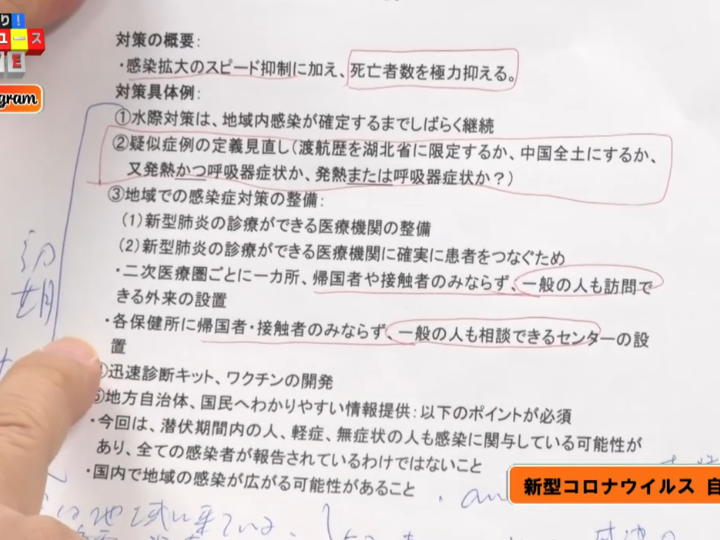 り!
ュース
E
gram
対策の概要:
・感染拡大のスピード抑制に加え、死亡者数を極力抑える。
対策具体例:
①水際対策は、地域内感染が確定するまでしばらく継続
②疑似症例の定義見直し(渡航歴を湖北省に限定するか、中国全土にするか、
又発熱かつ呼吸器症状か、発熱または呼吸器症状か?)
③地域での感染症対策の整備:
(1)新型肺炎の診療ができる医療機関の整備
(2)新型肺炎の診療ができる医療機関に確実に患者をつなぐため
・二次医療圏ごとに一カ所、帰国者や接触者のみならず、一般の人も訪問で
きる外来の設置
・各保健所に帰国者・接触者のみならず、一般の人も相談できるセンターの設
置
迅速診断キット、ワクチンの開発
地方自治体、国民へわかりやすい情報提供:以下のポイントが必須
・今回は、潜伏期間内の人、軽症、無症状の人も感染に関与している可能性が
あり、全ての感染者が報告されているわけではないこと
・国内で地域の感染が広がる可能性があること
初期
新型コロナウイルス 自